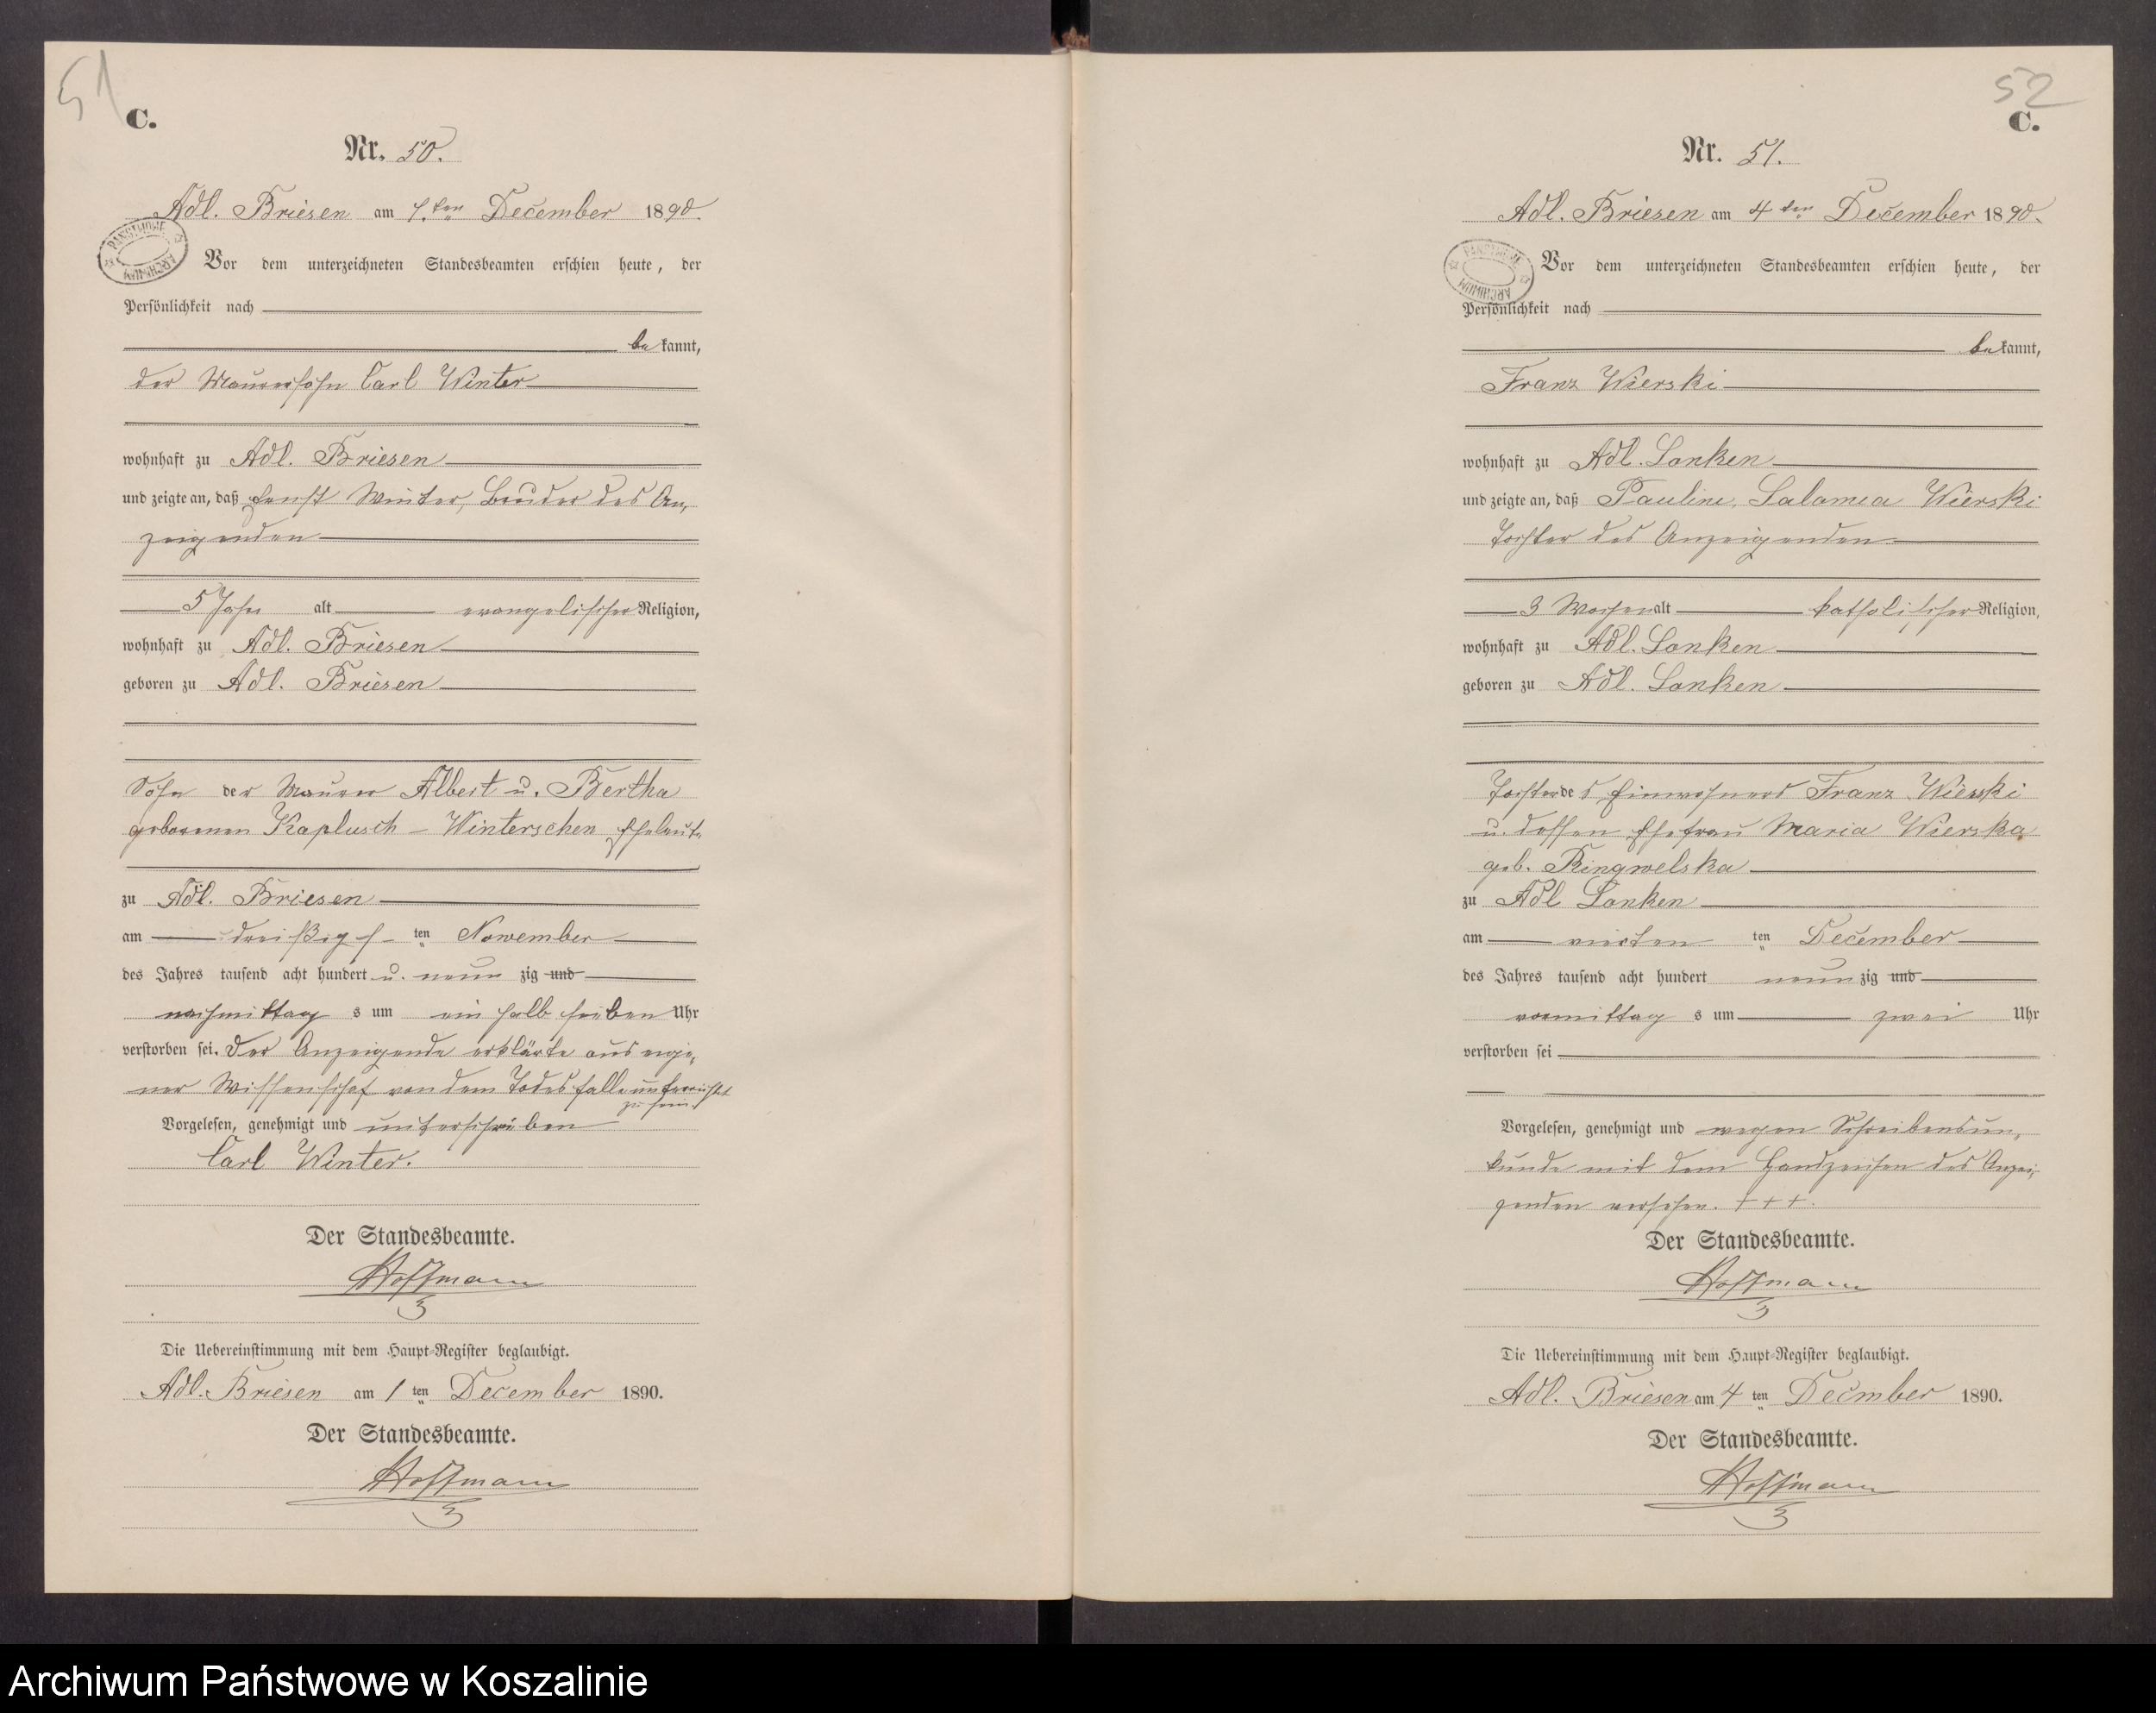 51
C.
Nr. 50.
Adl. Briesen am 1. ten December 1890.
PANSTWOWE ARCHIWUM
Vor dem unterzeichneten Standesbeamten erschien heute, der
Persönlichkeit nach
be kannt,
der Maurersohn Carl Winter
wohnhaft zu Adl. Briesen
und zeigte an, daß Ernst Winter, Bruder des An-
zeigenden
5 Jahr alt evangelischer Religion,
wohnhaft zu Adl. Briesen
geboren zu Adl. Briesen
Sohn der Maurer Albert u. Bertha
geborenen Kaplusch - Winterschen Eheleute
zu Adl. Briesen
am dreißigs ten November
des Jahres tausend acht hundert u. neun zig und
nachmittag s um ein halb sieben Uhr
verstorben sei. Der Anzeigende erklärte aus eige-
ner Wissenschaf von dem Todesfalle unterrichtet
zu sein
Vorgelesen, genehmigt und unterschrieben
Carl Winter.
Der Standesbeamte.
Hoffmann
Die Uebereinstimmung mit dem Haupt-Register beglaubigt.
Adl. Briesen am 1 ten December 1890.
Der Standesbeamte.
Hoffmann
52
C.
Nr. 51.
Adl. Briesen am 4 ten December 1890.
PANSTWOWE ARCHIWUM
Vor dem unterzeichneten Standesbeamten erschien heute, der
Persönlichkeit nach
be kannt,
Franz Wierski
wohnhaft zu Adl. Lanken
und zeigte an, daß Pauline, Salomea Wierski
Tochter des Anzeigenden
3 Wochen alt katholischer Religion,
wohnhaft zu Adl. Lanken
geboren zu Adl. Lanken
Tochter des Einwohners Franz Wierski
u. dessen Ehefrau Maria Wierska
geb. Ringwelska
zu Adl Lanken
am vierten ten December
des Jahres tausend acht hundert neun zig und
vormittag s um zwei Uhr
verstorben sei
Vorgelesen, genehmigt und wegen Schreibensun-
kunde mit dem Handzeichen des Anzei-
genden versehen. + + +.
Der Standesbeamte.
Hoffmann
Die Uebereinstimmung mit dem Haupt-Register beglaubigt.
Adl. Briesen am 4 ten Decmber 1890.
Der Standesbeamte.
Hoffmann
Archiwum Państwowe w Koszalinie